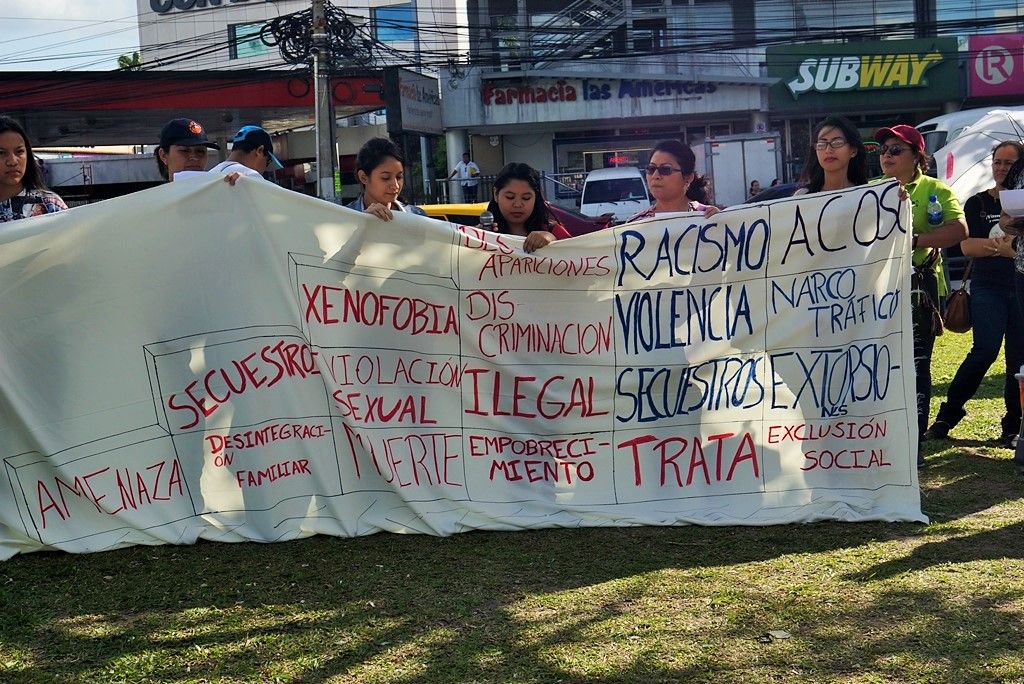 Farmacia las Américas
SUBWAY
R
DES
APARICIONES
RACISMO
ACOSO
XENOFOBIA
DIS-
CRIMINACION
VIOLENCIA
NARCO
TRÁFICO
SECUESTRO
VIOLACIÓN
SEXUAL
ILEGAL
SECUESTROS
EXTORSIO-
NES
AMENAZA
DESINTEGRACI-
ÓN
FAMILIAR
MUERTE
EMPOBRECI-
MIENTO
TRATA
EXCLUSIÓN
SOCIAL